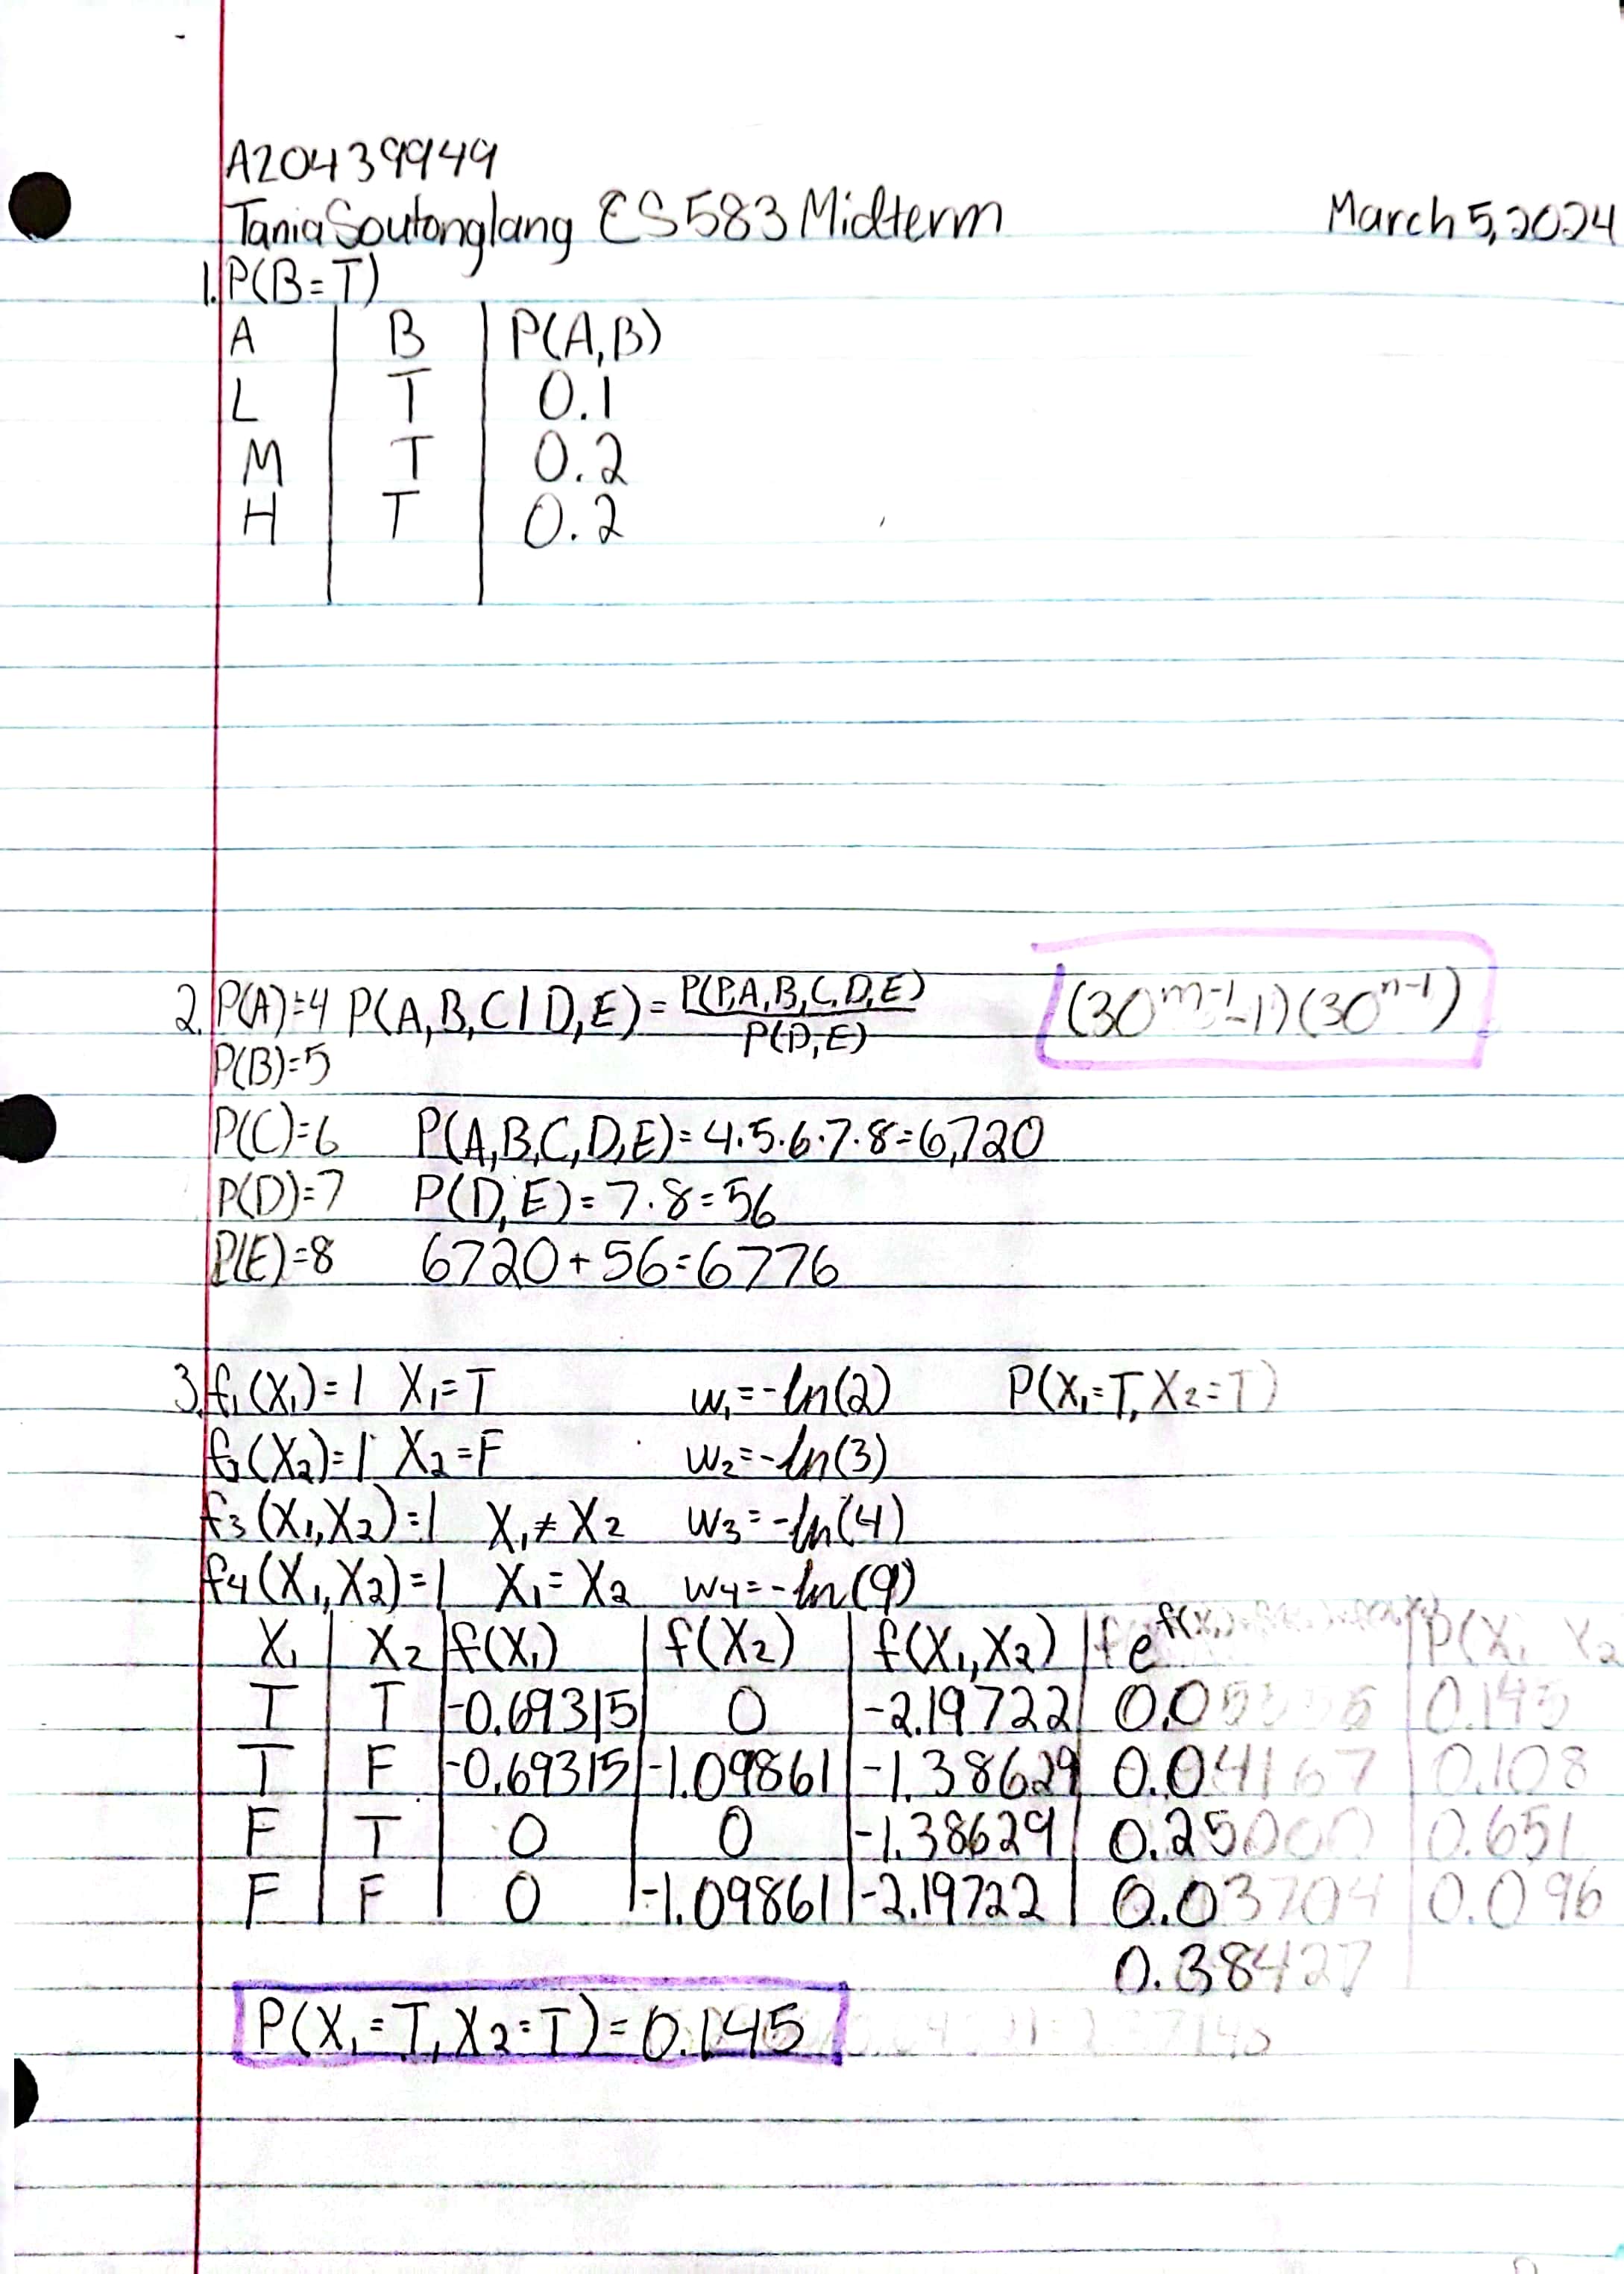 A20439949
Tania Soutonglang CS583 Midterm March 5, 2024
1. P(B=T)
A B P(A,B)
L T 0.1
M T 0.2
H T 0.2
2. P(A)=4 P(A,B,C|D,E) = P(P,A,B,C,D,E) / P(D,E) (30^m-1 -1)(30^n-1)
P(B)=5
P(C)=6 P(A,B,C,D,E)=4·5·6·7·8=6,720
P(D)=7 P(D,E)=7·8=56
P(E)=8 6720+56=6776
3. f₁(X₁)=1 X₁=T w₁=-ln(2) P(X₁=T, X₂=T)
f₂(X₂)=1 X₂=F w₂=-ln(3)
f₃(X₁,X₂)=1 X₁≠X₂ w₃=-ln(4)
f₄(X₁,X₂)=1 X₁=X₂ w₄=-ln(9)
X₁ X₂ f(X₁) f(X₂) f(X₁,X₂) e P(X₁ X₂
T T -0.69315 0 -2.19722 0.145
T F -0.69315 -1.09861 -1.38629 0.04167 0.108
F T 0 0 -1.38629 0.25000 0.651
F F 0 -1.09861 -2.19722 0.03704 0.096
0.38427
P(X₁=T, X₂=T)=0.145